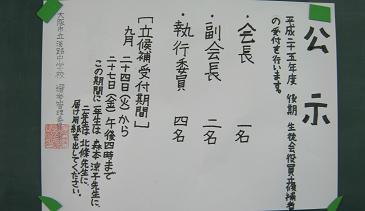 公示
平成二十五年度 後期 生徒会役員立候補者
の受付を行います。
・会長 一名
・副会長 二名
・執行委員 四名
[立候補受付期間]
九月 二十四日(火)から
二十七日(金)午後四時まで
この期間に一年生は 森本 涼子先生に、
二年生は 北條先生に、
届け用紙を出してください。
大阪市立淡路中学校 選挙管理委員会